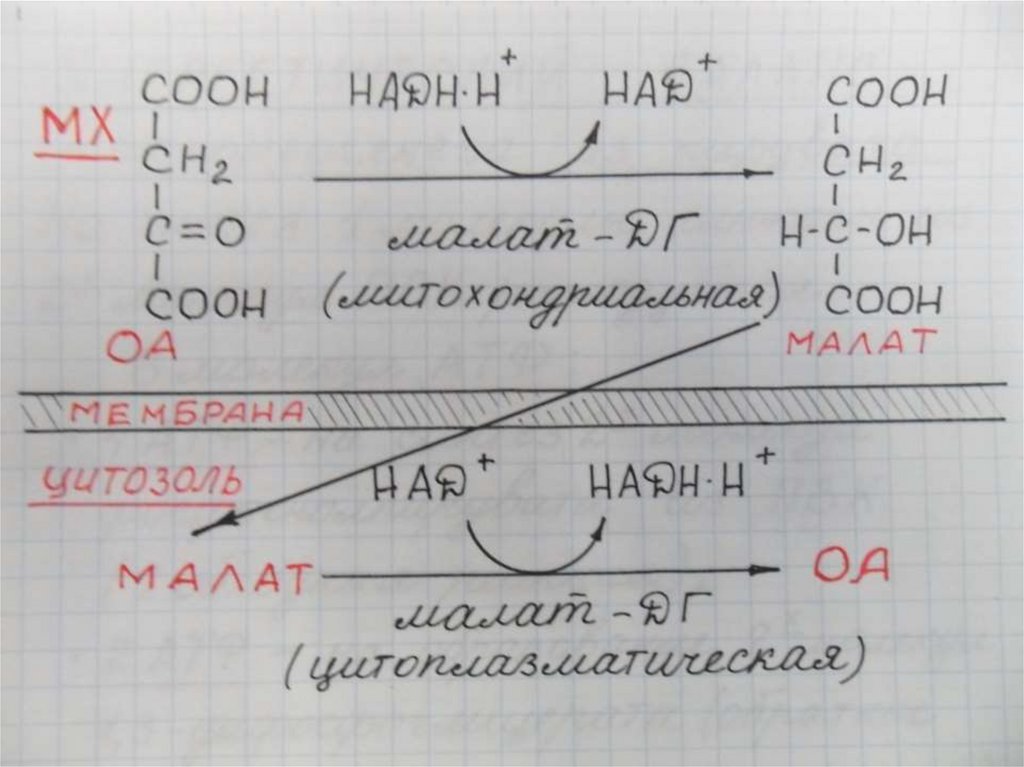 COOH НАДН·Н⁺ НАД⁺ COOH
МХ
CH₂ CH₂
C=O малат-ДГ H-C-OH
COOH (митохондриальная) COOH
ОА МАЛАТ
МЕМБРАНА
ЦИТОЗОЛЬ НАД⁺ НАДН·Н⁺
МАЛАТ ОА
малат-ДГ
(цитоплазматическая)